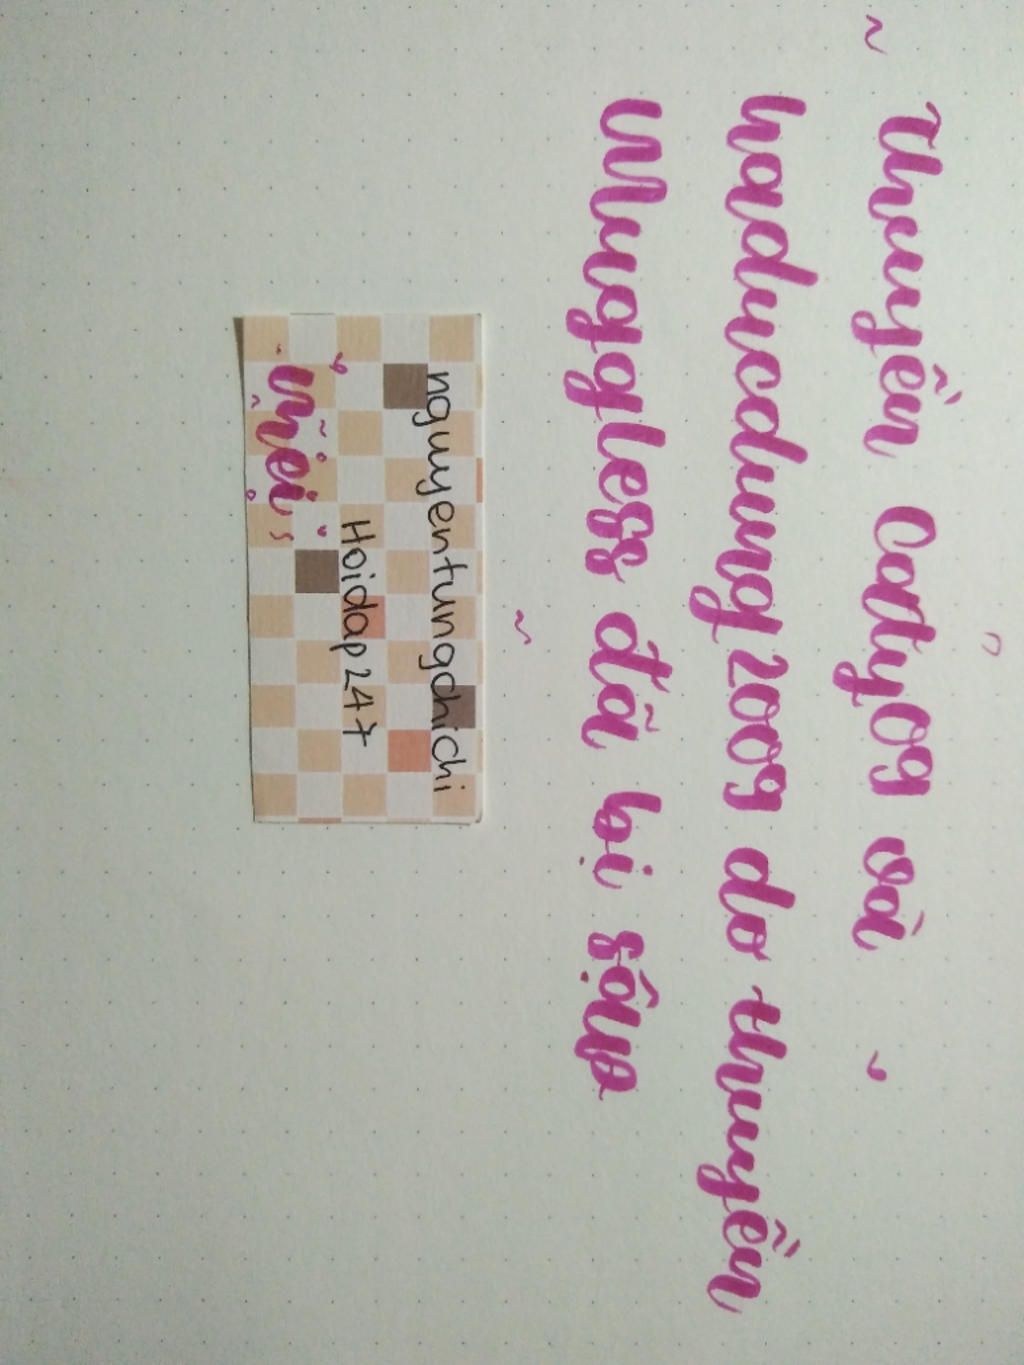 ~ Thuyền Cáty09 và
haducdung2009 do thuyền
Muggless đã bị sập
~
nguyentungchichi
Hoidap247